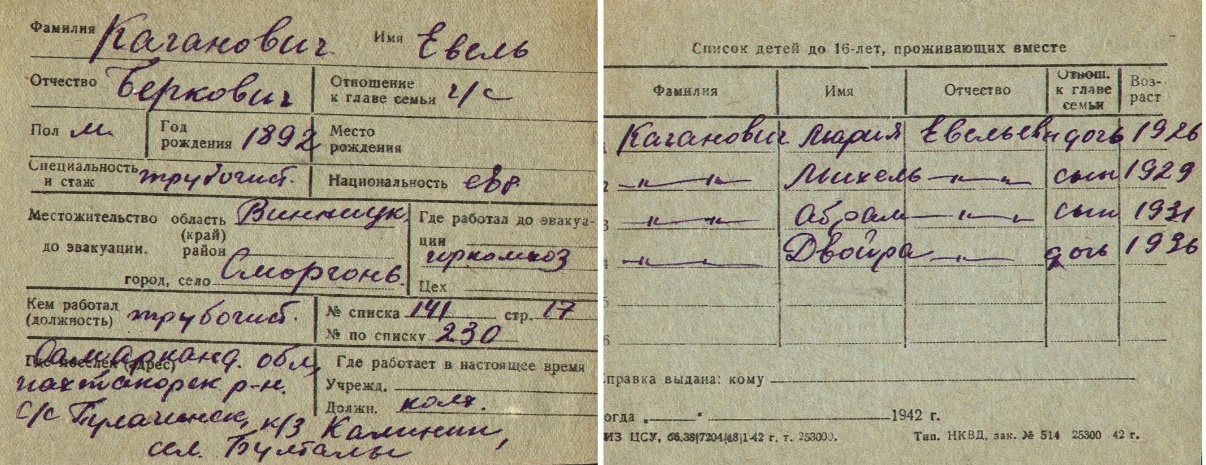 Фамилия Каганович Имя Евель
Отчество Беркович Отношение к главе семьи г/с
Пол м. Год рождения 1892 Место рождения
Специальность и стаж трубочист. Национальность евр
Местожительство до эвакуации. область (край) Винницк.
район
город, село Сморгонь.
Где работал до эвакуации горкомхоз
Цех
Кем работал (должность) трубочист.
№ списка 141 стр. 17
№ по списку 230
Где поселен (адрес) Самарканд. обл,
пахтакорск р-н.
с/с к/з Калинин,
сел.
Где работает в настоящее время
Учрежд.
Должн. колх.
Список детей до 16-лет, проживающих вместе
Фамилия Имя Отчество Отнош. к главе семьи Возраст
Каганович Мария Евельевн дочь 1926
2 —"—"— Михель —"—"— сын 1929
3 —"—"— Абрам —"—"— сын 1931
4 —"—"— Двойра —"— дочь 1936
5
6
правка выдана: кому
огда „ “ 1942 г.
ИЗ ЦСУ, 66,38|7204|48|1-42 г. т. 253000. Тип. НКВД, зак. № 514 25300 42 г.